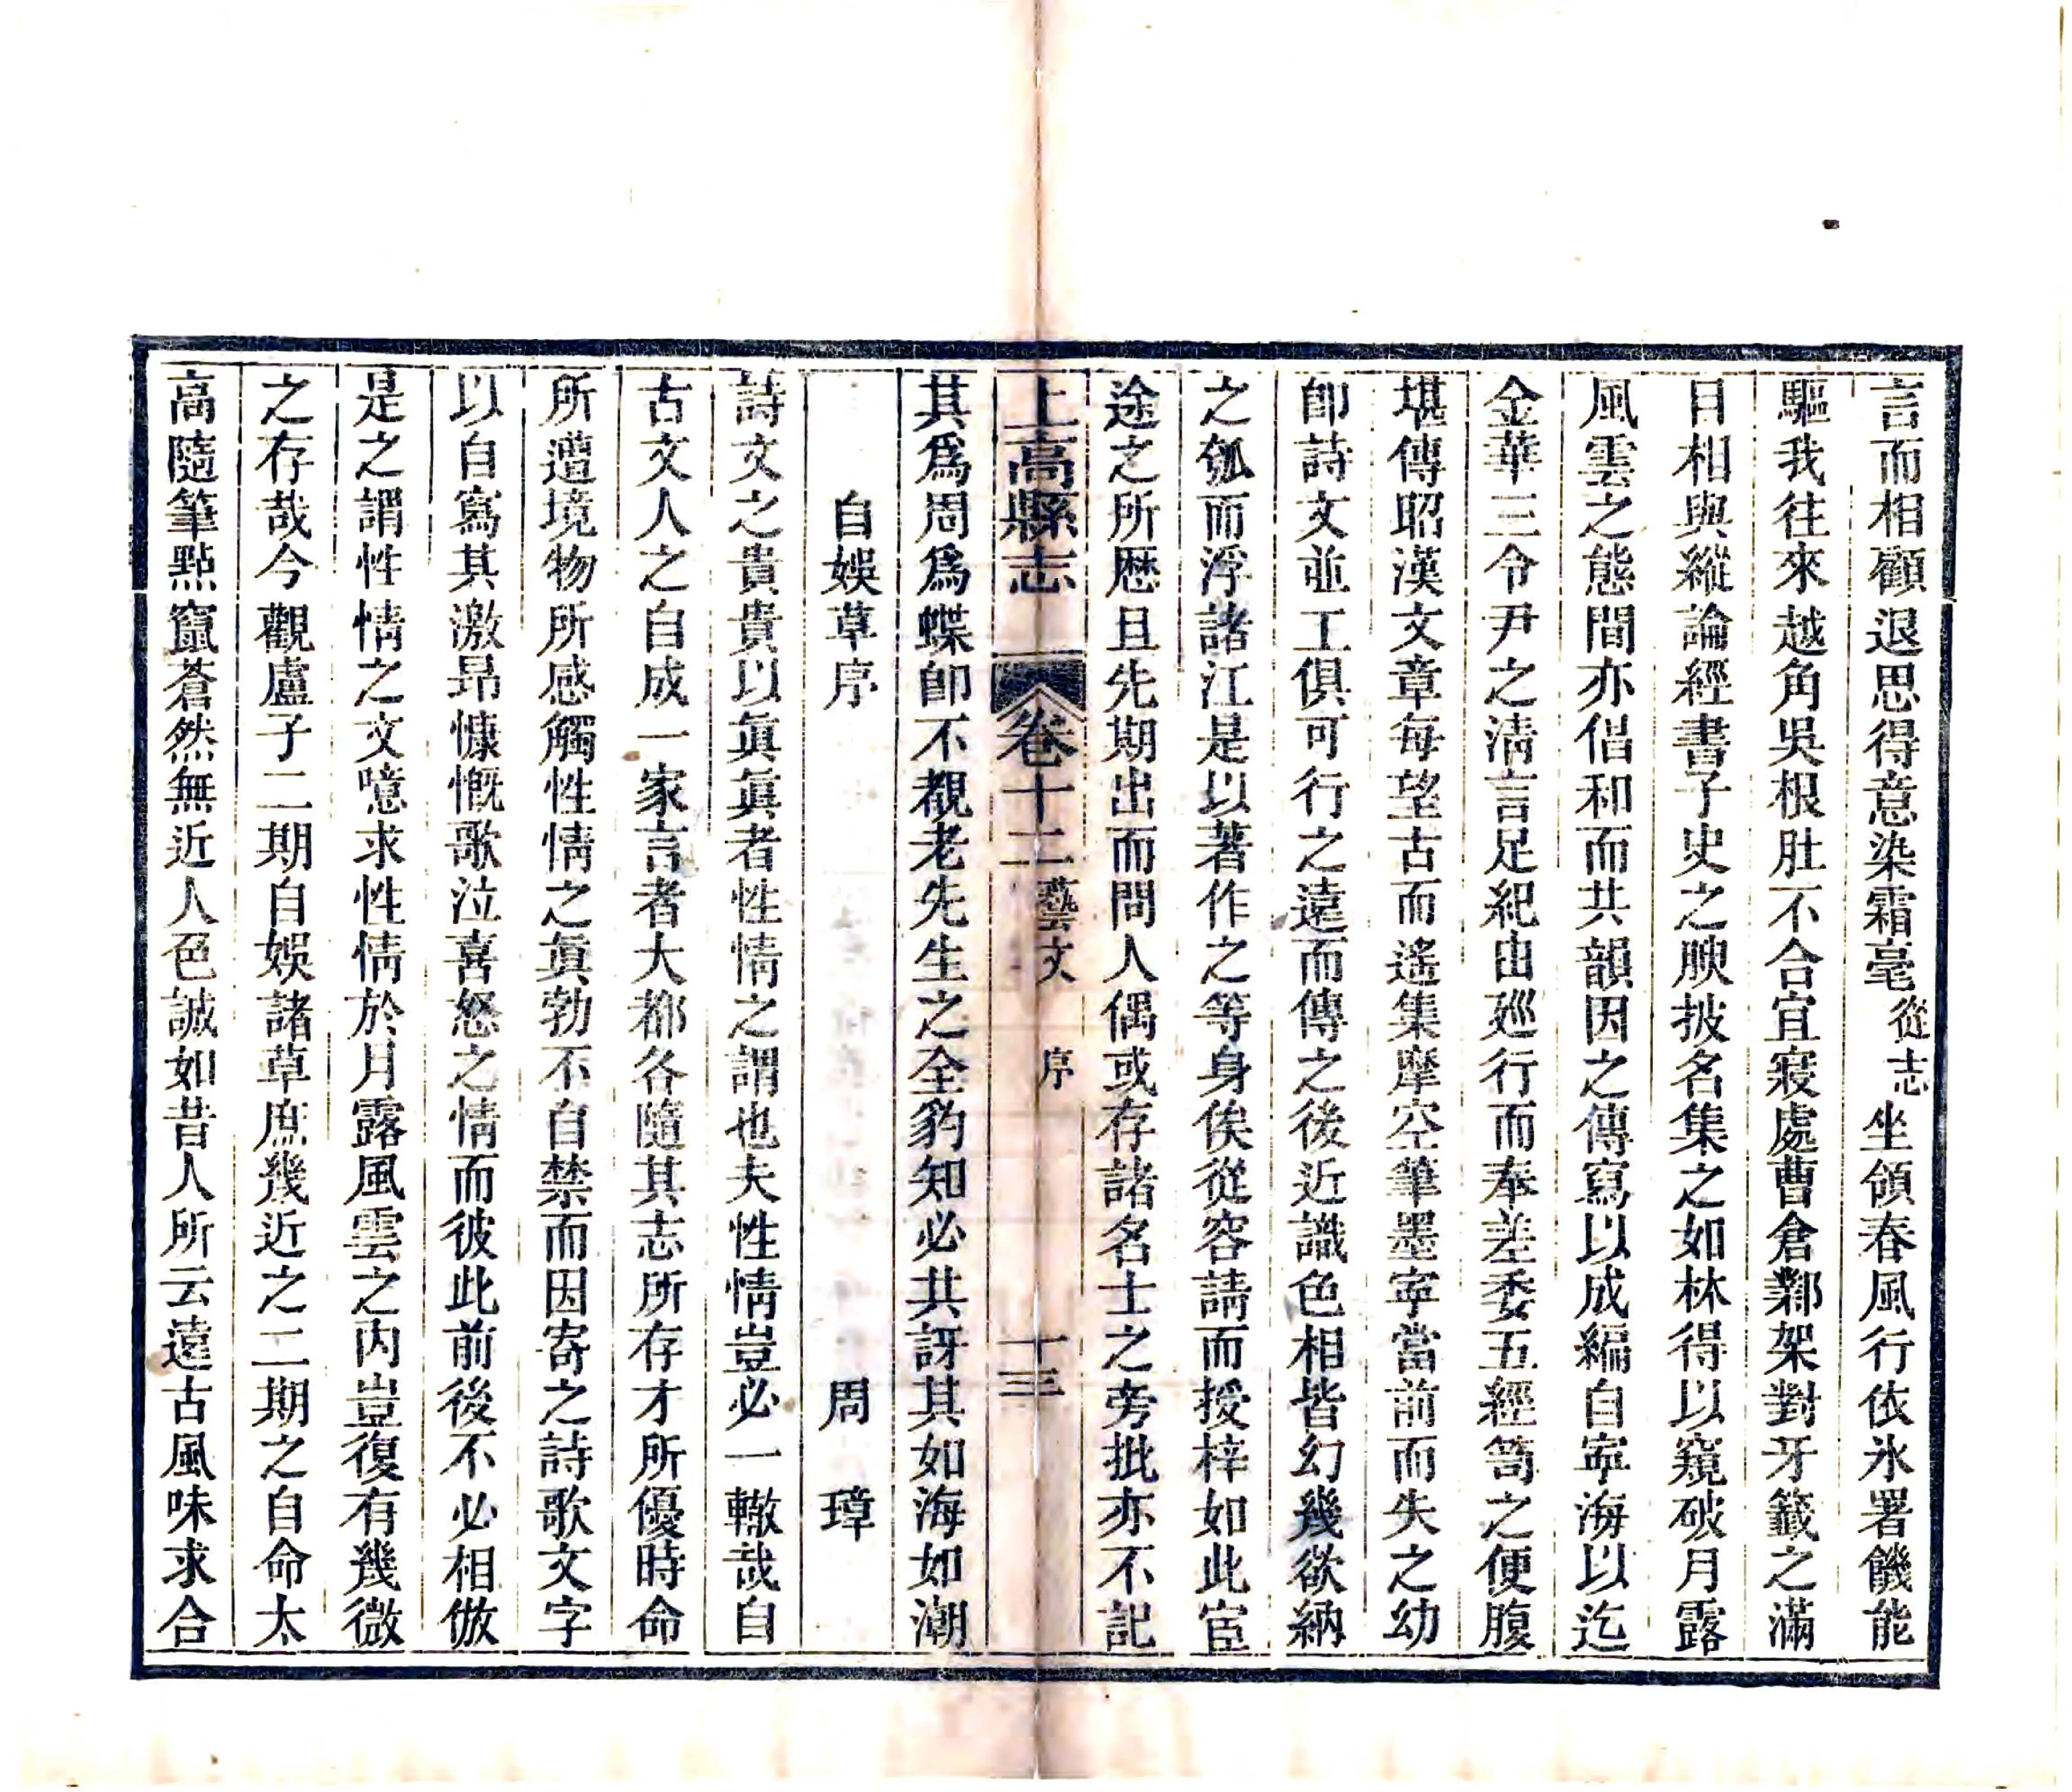 言而相顧退思得意染霜毫從志坐領春風行依氷署饑能
驅我往來越角吳根肚不合宜寂處曹倉鄴架對牙籤之滿
目相與縱論經書子史之腴披名集之如林得以窺破月露
風雲之態間亦倡和而共韻因之傳寫以成編自寧海以迄
金華三令尹之淸言足紀由廵行而奉差委五經笥之便腹
堪傳昭漢文章每望古而遙集摩空筆墨寧當前而失之幼
卽詩文並工俱可行之遠而傳之後近識色相皆幻幾欲納
之瓠而浮諸江是以著作之等身俟從容請而授梓如此宦
途之所歷且先期出而問人偶或存諸名士之旁批亦不記
上高縣志 卷十二 藝文 序 十三
其爲周爲蝶卽不覩老先生之全豹知必共訝其如海如潮
自娛草序 周璋
詩文之貴貴以眞眞者性情之謂也夫性情豈必一轍哉自
古文人之自成一家言者大都各隨其志所存才所優時命
所遭境物所感觸性情之眞勃不自禁而因寄之詩歌文字
以自寫其激昻慷慨歌泣喜怒之情而彼此前後不必相倣
是之謂性情之文噫求性情於月露風雲之內豈復有幾微
之存哉今觀盧子二期自娛諸草庶幾近之二期之自命太
高隨筆點竄蒼然無近人色誠如昔人所云遠古風味求合